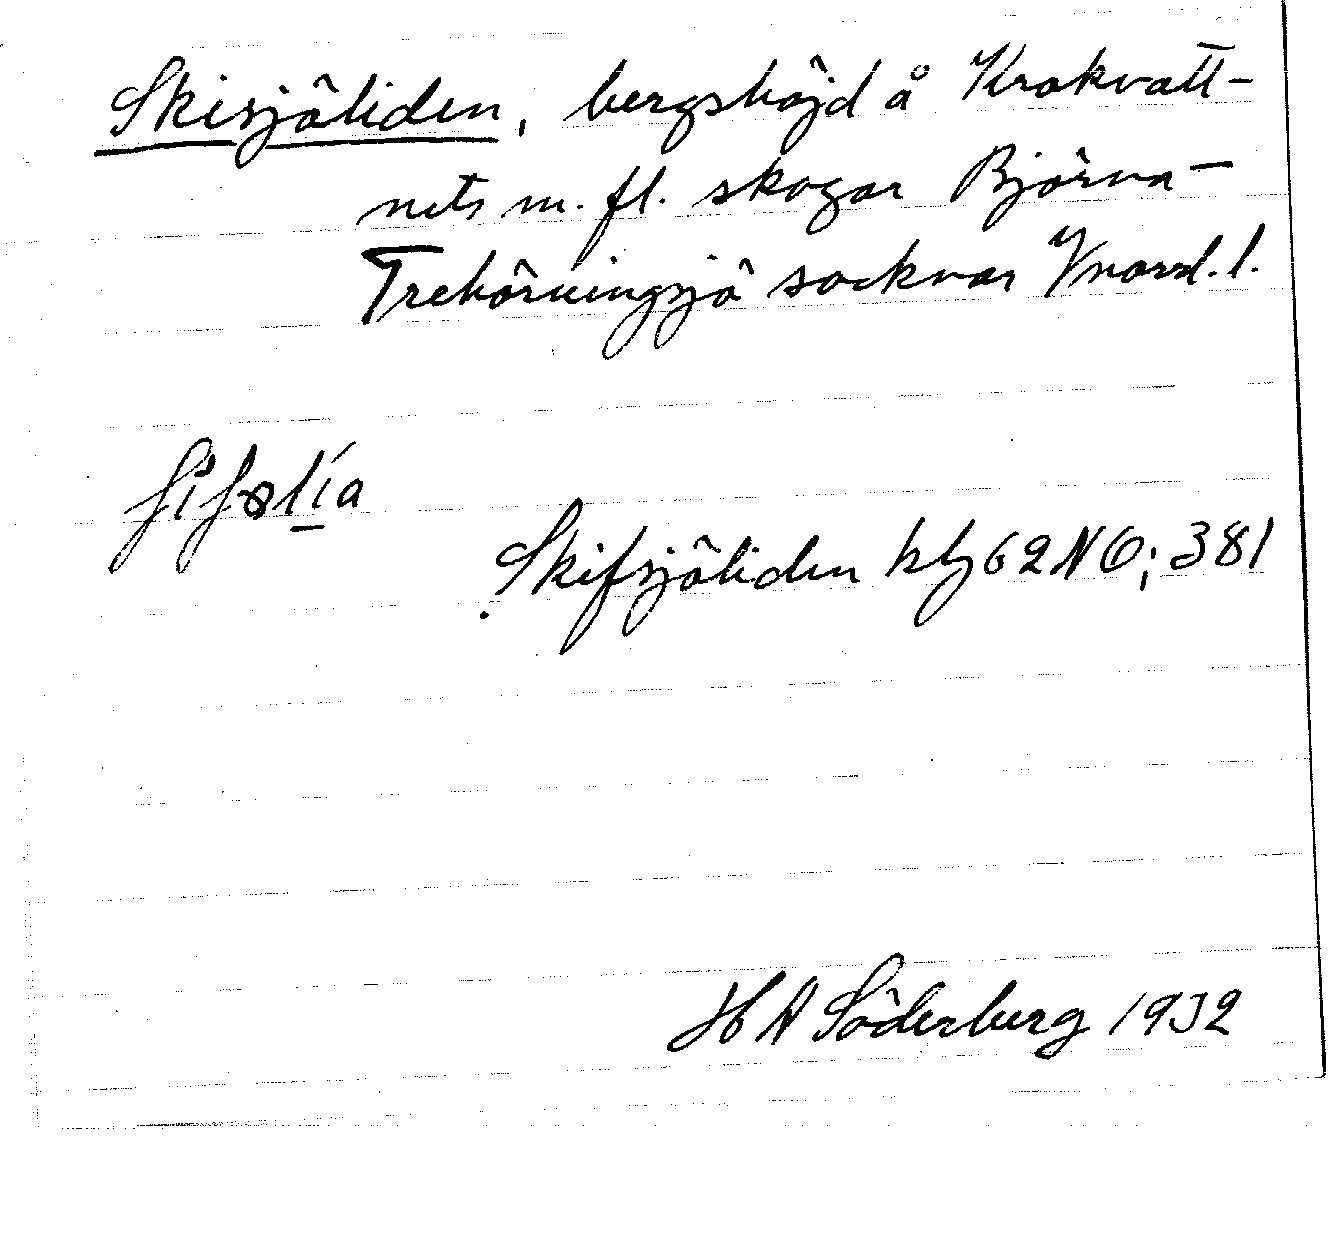 Skisjöliden, bergshöjd å Krokvatt-
nets m. fl. skogar Björna-
Trehörningsjö socknar Vnorrl. l.
Skifsjöliden kbl 62 NO; 381
H A Söderberg 1932